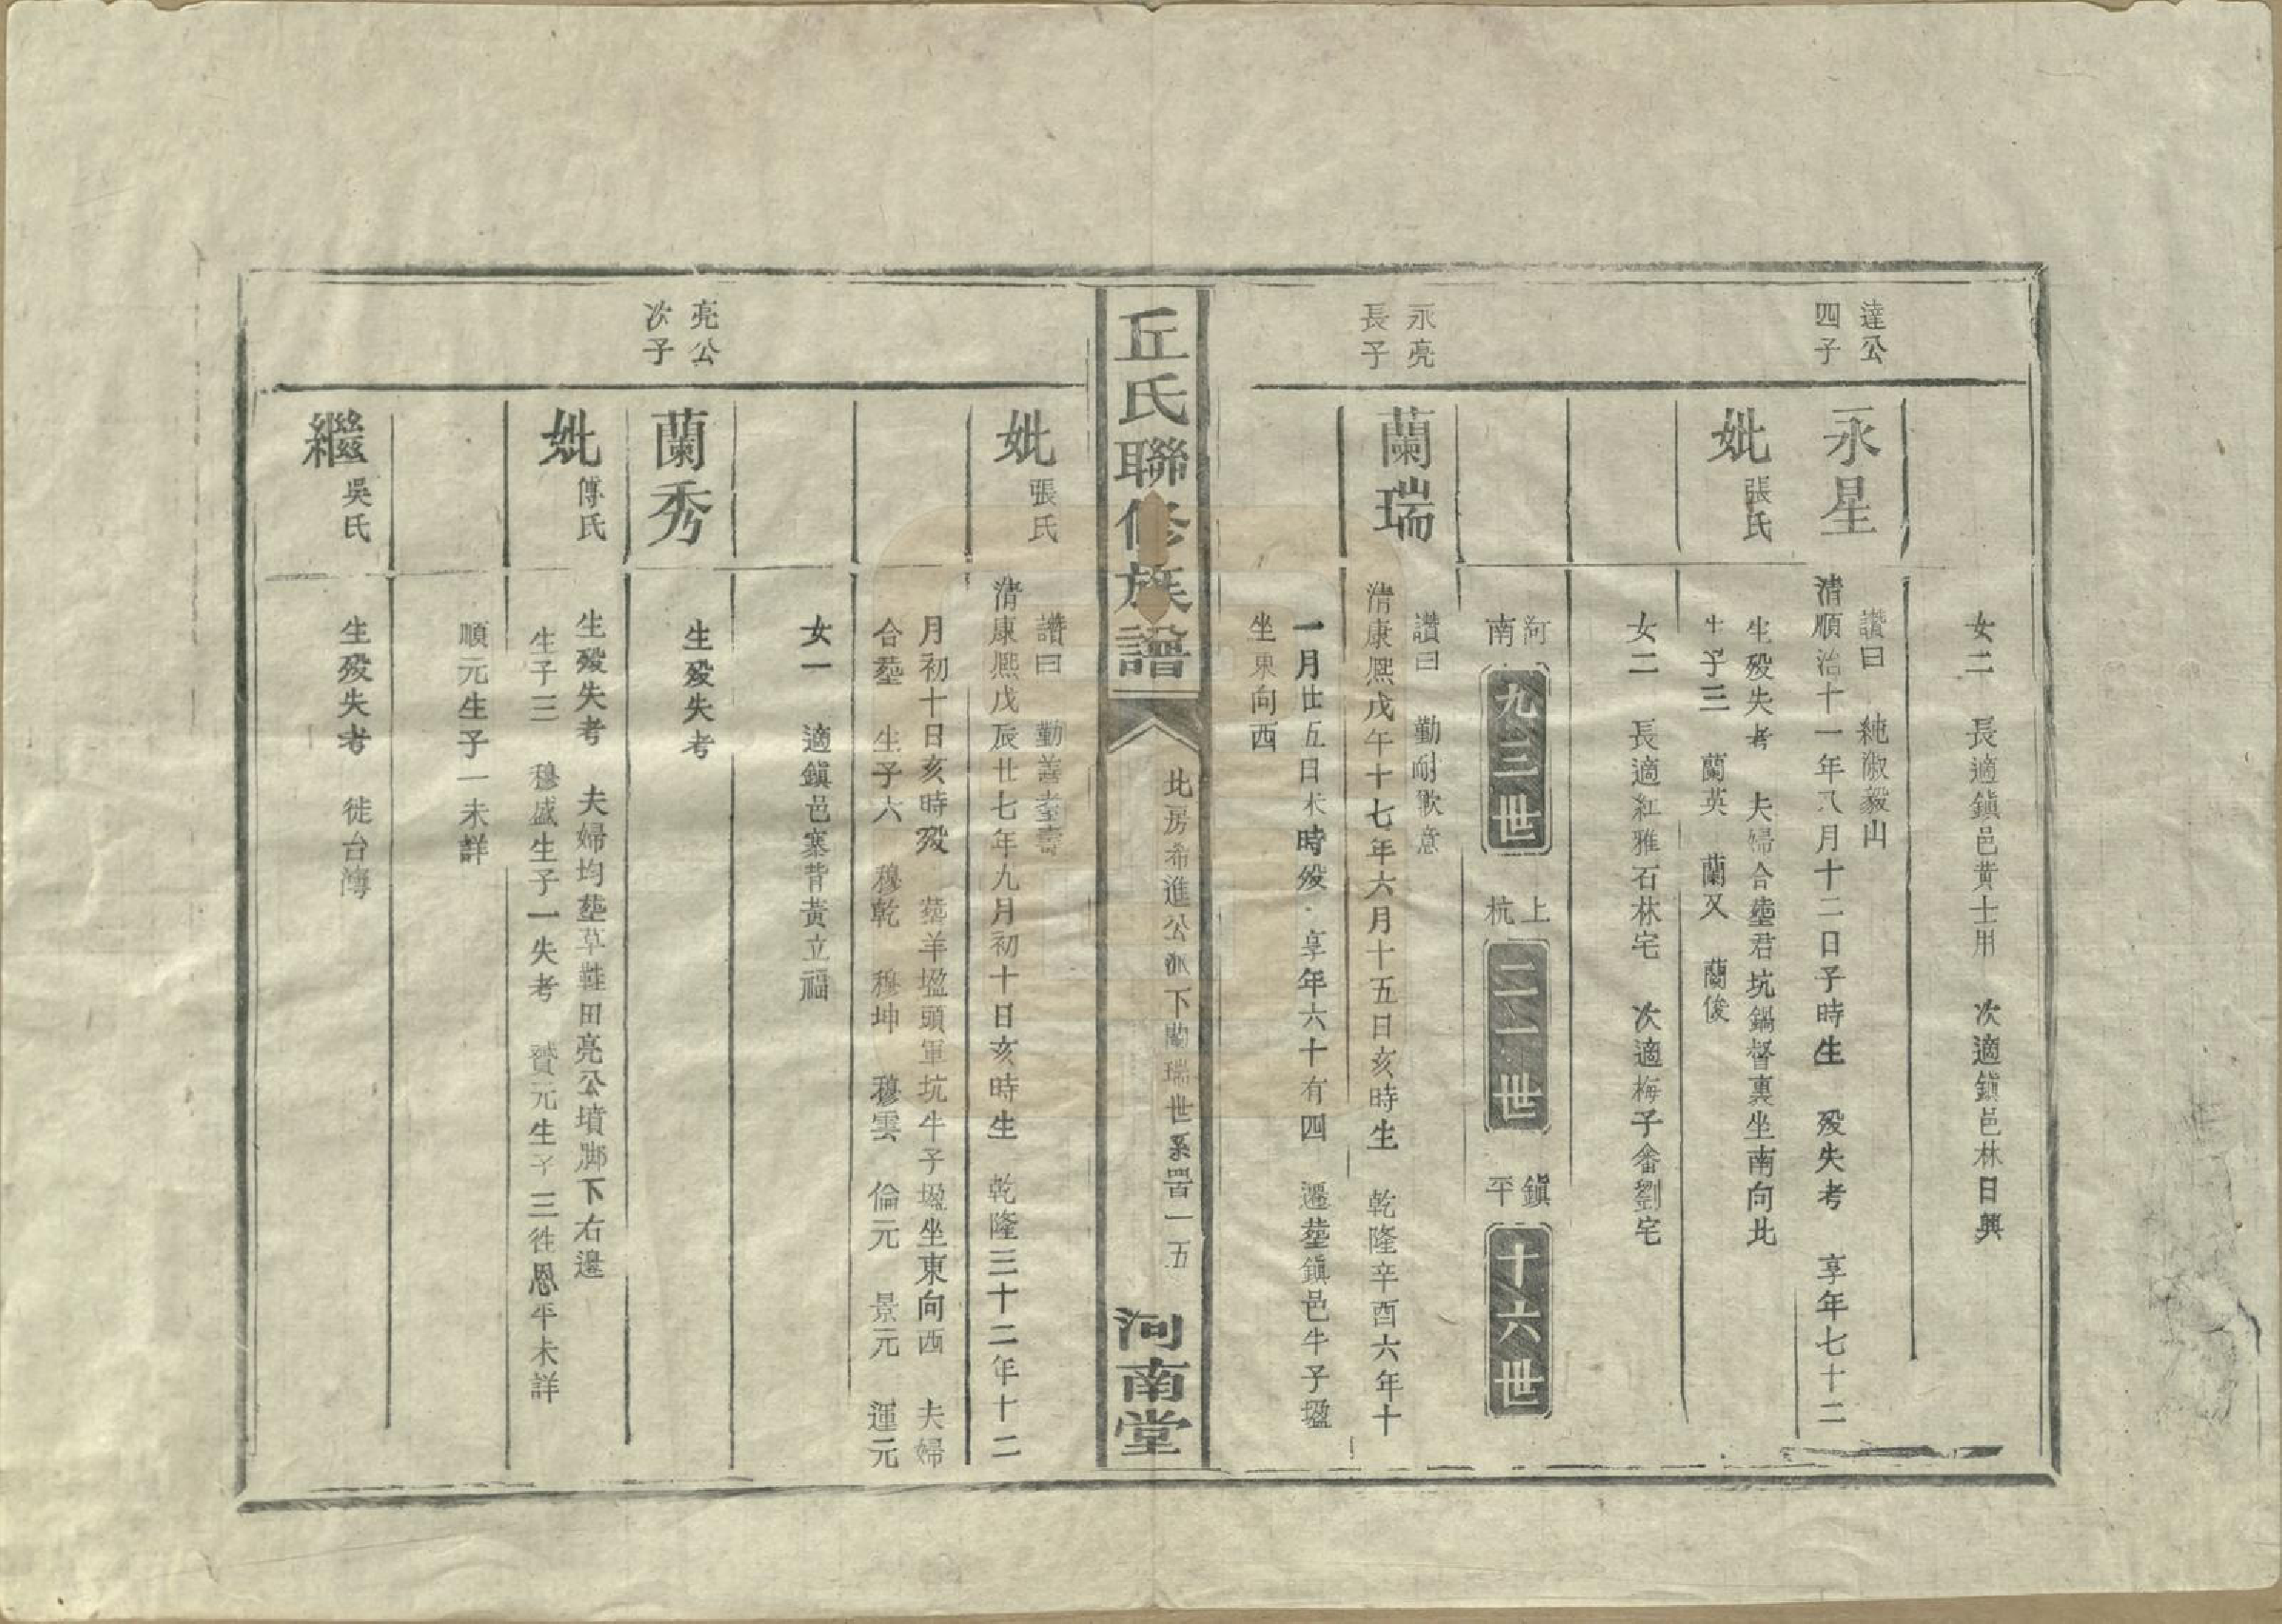 女二　長適鎮邑黃士用　次適鎮邑林日興
達公
四子
永星
讚曰　純淑毅山
清順治十一年八月十二日子時生　歿失考　享年七十二
妣張氏
生歿失考　夫婦合塟君坑鍋督裏坐南向北
生子三　蘭英　蘭又　蘭俊
女二　長適紅雅石林宅　次適梅子畬劉宅
河南　九三世　上杭　二一世　鎮平　十六世
永亮
長子
蘭瑞
讚曰　勤耐歌意
清康熈戊午十七年六月十五日亥時生　乾隆辛酉六年十
一月廿五日未時歿　享年六十有四　遷塟鎮邑牛子㙷
坐東向西
丘氏聯修族譜
北房希進公派下蘭瑞世系 一五
河南堂
妣張氏
讚曰　勤善壼壽
清康熈戊辰廿七年九月初十日亥時生　乾隆三十二年十二
月初十日亥時歿　塟羊㙷頭軍坑牛子㙷坐東向西　夫婦
合塟　生子六　穆乾　穆坤　穆雲　倫元　景元　運元
女一　適鎮邑寨背黃立福
亮公
次子
蘭秀
生歿失考
妣傅氏
生歿失考　夫婦均塟草 田亮公墳脚下右邊
生子三　穆盛生子一失考　贊元生子三徃恩平未詳
順元生子一未詳
繼吳氏
生歿失考　徙台灣